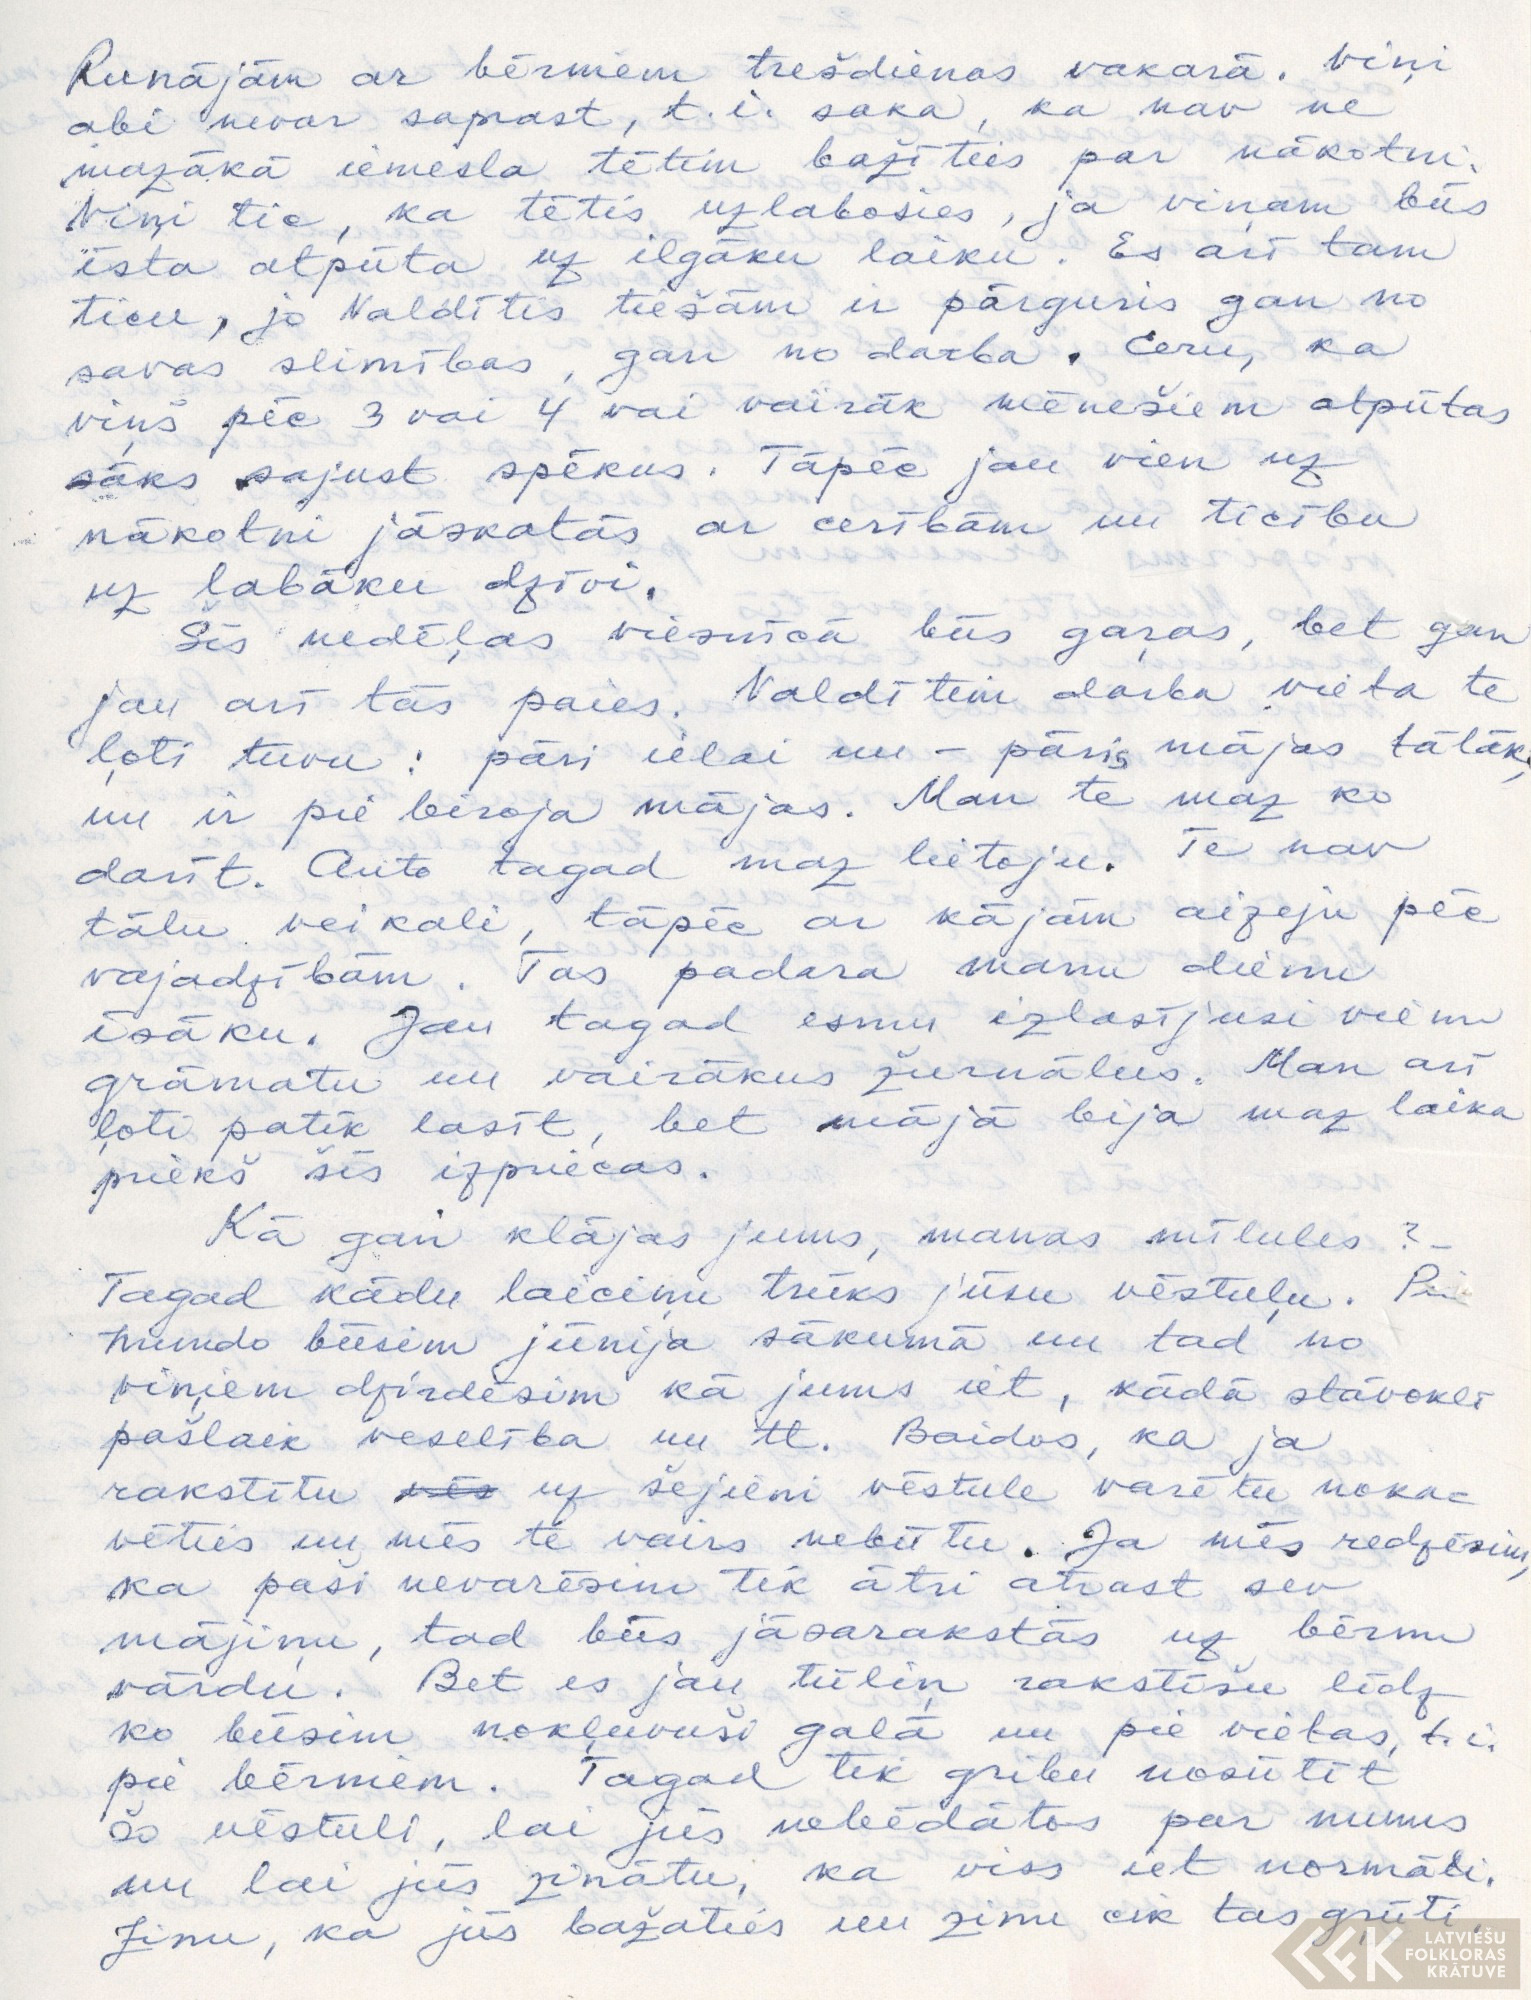 Runājām ar bērniem trešdienas vakarā. Viņi
abi nevar saprast, t.i. saka, ka nav ne
mazākā iemesla tētim bažīties par nākotni.
Viņi tic, ka tētis uzlabosies, ja viņam būs
īsta atpūta uz ilgāku laiku. Es arī tam
ticu, jo Valdītis tiešām ir pārguris gan no
savas slimības, gan no darba. Ceru, ka
viņš pēc 3 vai 4 vai vairāk mēnešiem atpūtas
sāks sajust spēkus. Tāpēc jau vien uz
nākotni jāskatās ar cerībām un ticību
uz labāku dzīvi.
Šīs nedēļas viesnīcā būs gaŗas, bet gan
jau arī tās paies. Valdītim darba vieta te
ļoti tuvu: pāri ielai un – pāris mājas tālāk,
un ir pie biroja mājas. Man te maz ko
darīt. Auto tagad maz lietoju. Te nav
tālu veikali, tāpēc ar kājām aizeju pēc
vajadzībām. Tas padara manu dienu
īsāku. Jau tagad esmu izlasījusi vienu
grāmatu un vairākus žurnālus. Man arī
ļoti patīk lasīt, bet mājā bija maz laika
priekš šīs izpriecas.
Kā gan klājas jums, manas mīlules? –
Tagad kādu laiciņu trūks jūsu vēstuļu. Pie
Mundo būsim jūnija sākumā un tad no
viņiem dzirdēsim kā jums iet, kādā stāvoklī
pašlaik veselība un tt. Baidos, ka ja
rakstītu uz šejieni vēstule varētu noka-
vēties un mēs te vairs nebūtu. Ja mēs redzēsim,
ka paši nevarēsim tik ātri atrast sev
mājiņu, tad būs jāsarakstās uz bērnu
vārdu. Bet es jau tūliņ rakstīšu līdz
ko būsim nokļuvuši galā un pie vietas, t.i.
pie bērniem. Tagad tik gribu nosūtīt
šo vēstuli, lai jūs nebēdātos par mums
un lai jūs zinātu, ka viss iet normāli.
Zinu, ka jūs bažaties un zinu cik tas grūti.
LATVIEŠU
FOLKLORAS
KRĀTUVE